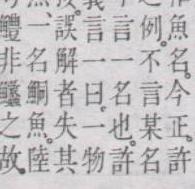 魚名今正。許
之例。不言某名
言一名也。許
言一曰一物
誤解者失其
一名鮦魚。陸
鱧非鱺之故。